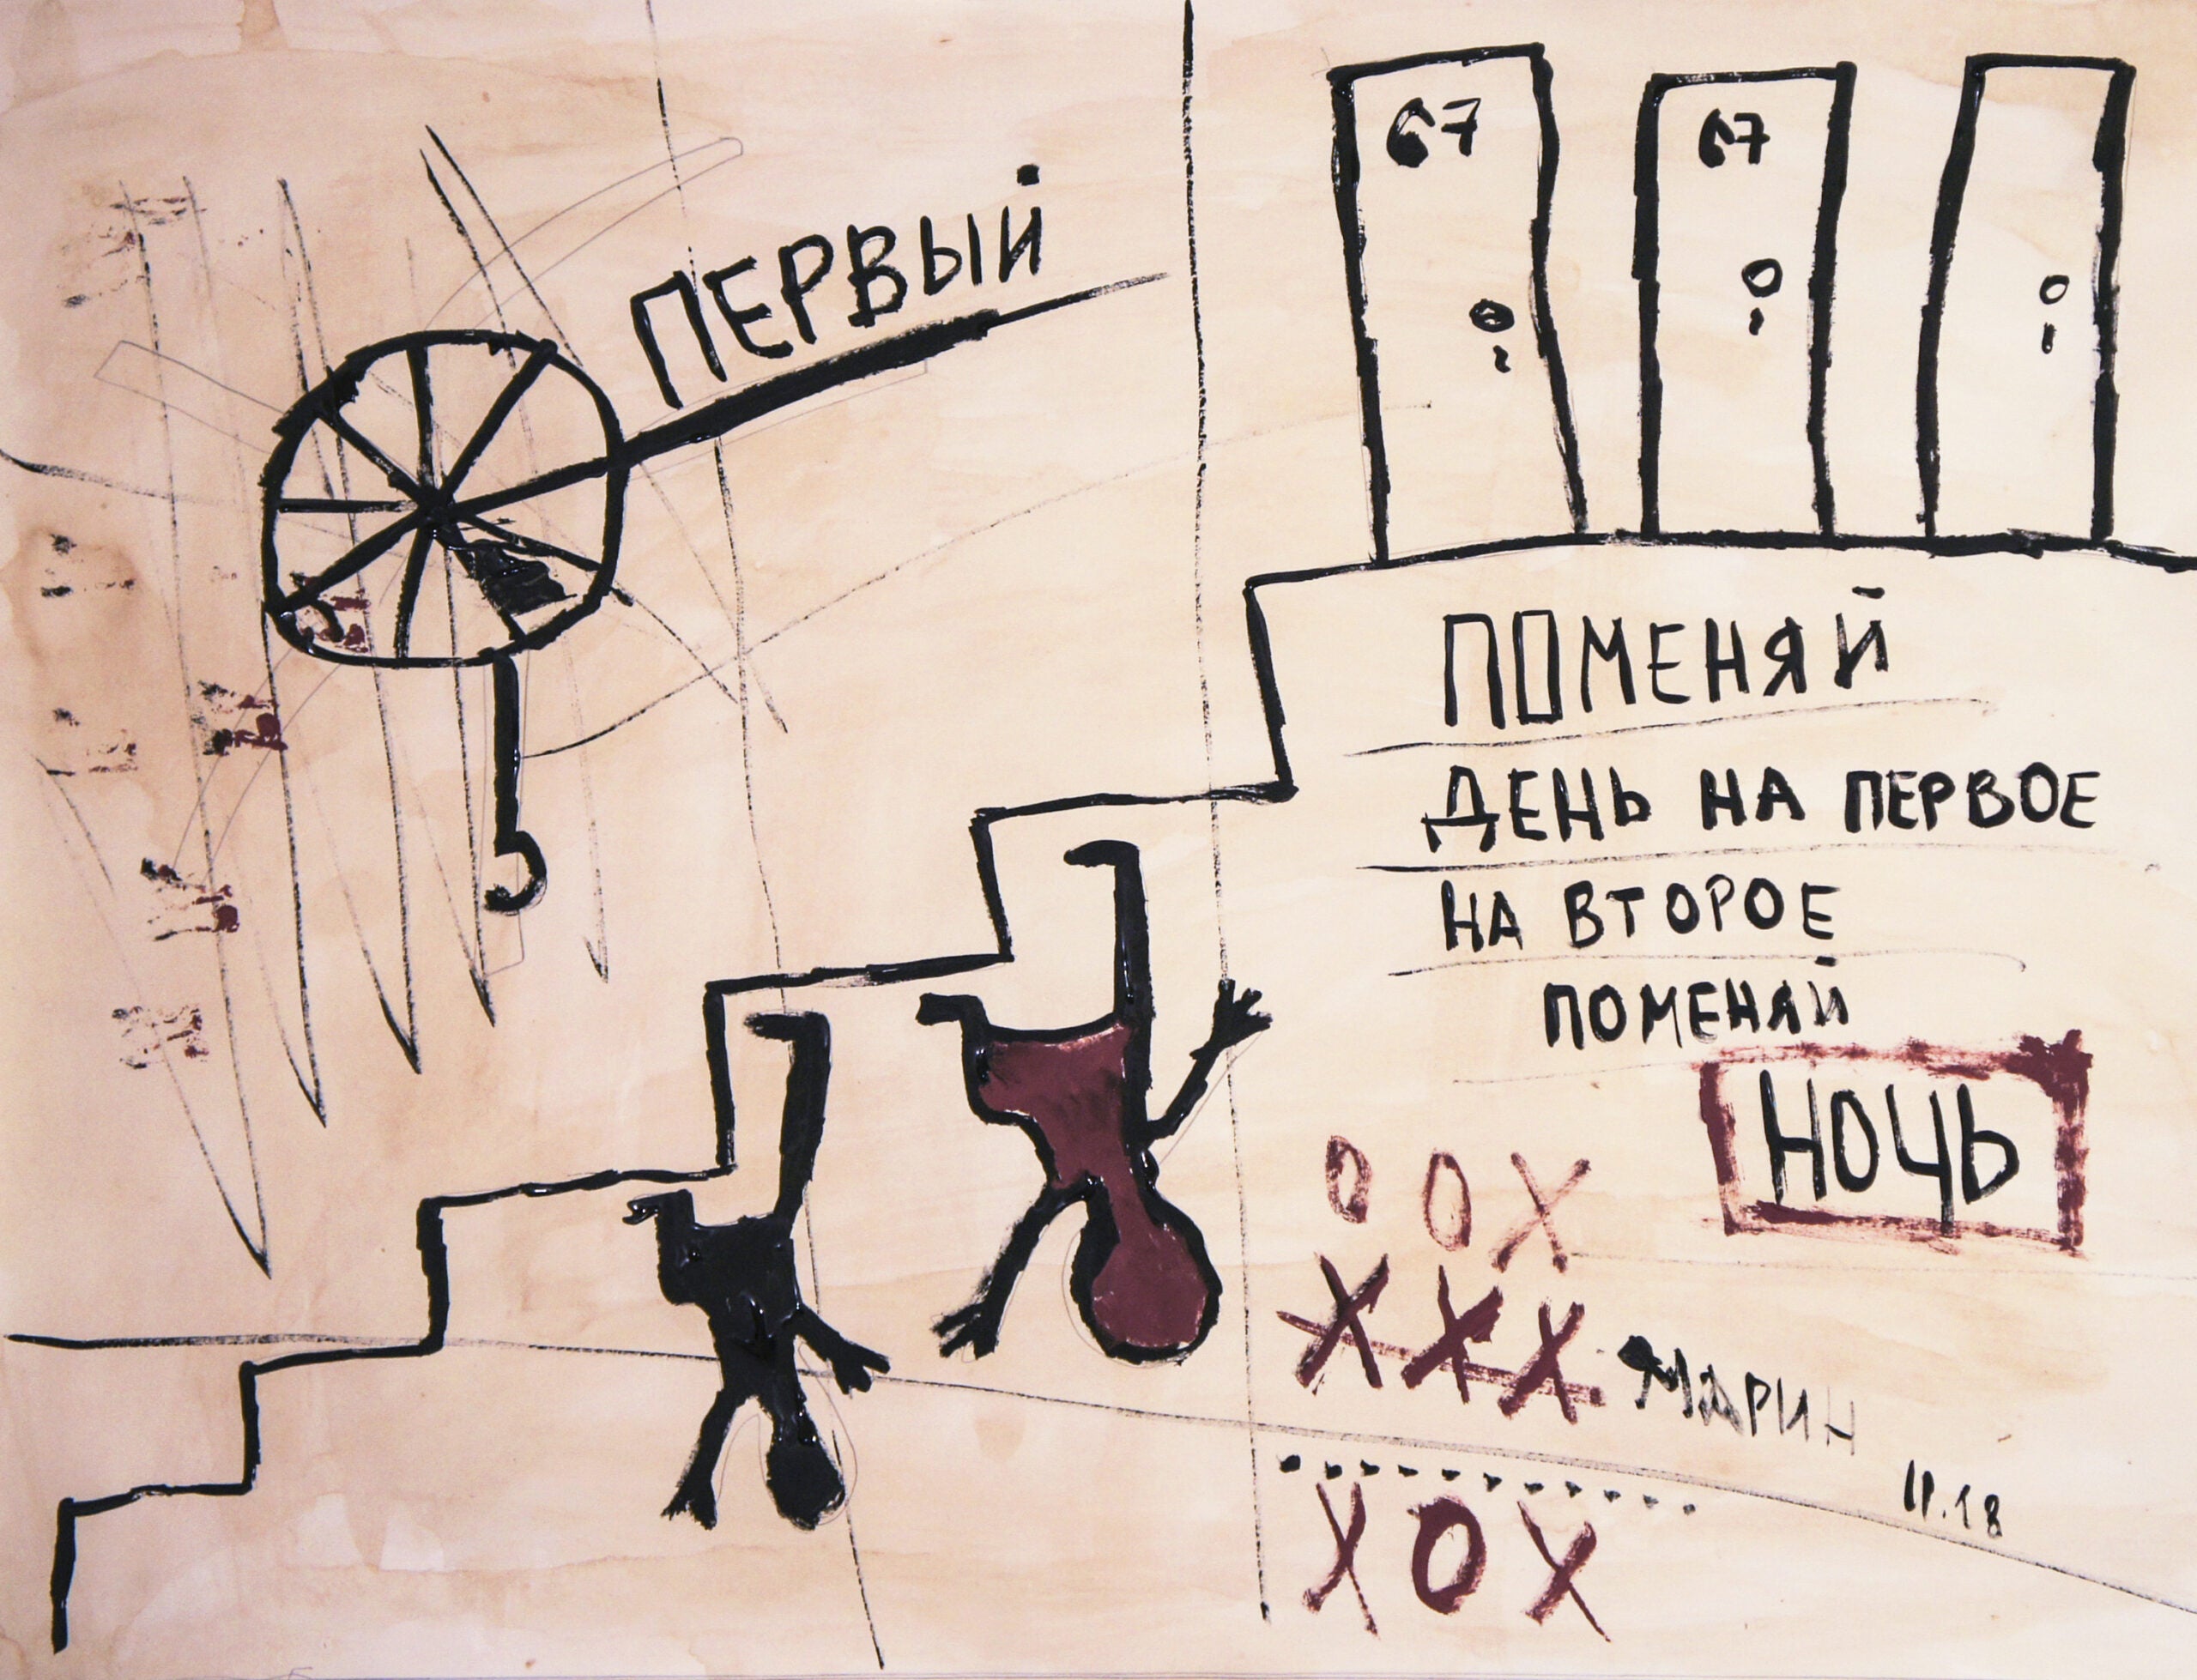 ПЕРВЫЙ
67
67
ПОМЕНЯЙ
ДЕНЬ НА ПЕРВОЕ
НА ВТОРОЕ
ПОМЕНЯЙ
НОЧЬ
ООХ
ХХХ
ХОХ
МАРИН
11.18